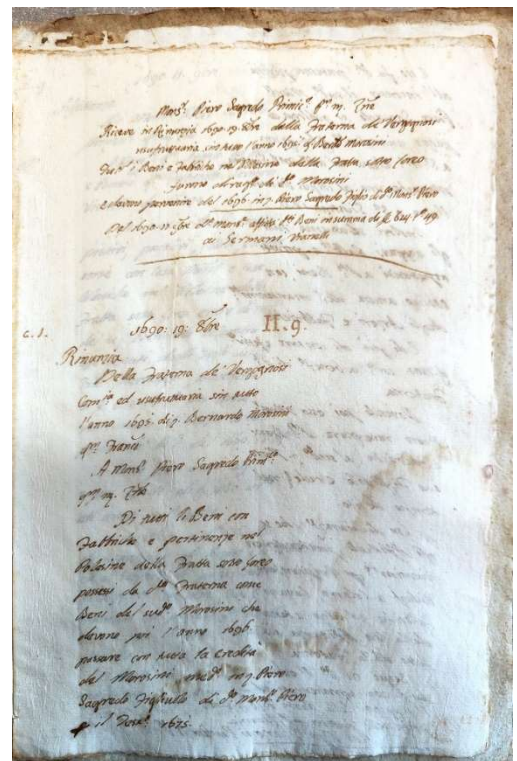 Mons.r Piero Sagredo Primic.o q.m 
Riceve in Rinuncia 1690 19 8bre della Fraterna de Vergognosi
usufrutuaria sin tutto l'anno 1695 q. Bern.do Morosini
Tutti i Beni e Fabriche nel Polesine della Fratta sotto Loreo
furono di rag.e di d.o Morosini
e devono pervenire del 1696 in 
Piero Sagredo Figlio di d.o Mons.r Piero
Del 1690 11 d.o Mons.r affitta d.ti Beni in summa di
c. 1. 1690: 19: 8bre II. 9.
Rinuncia
Della Fraterna de' Vergognosi
Com.a ed usufrutuaria sin tutto
l'anno 1695 di q. Bernardo Morosini
q.m Franc.o
A Mons.r Piero Sagredo Prim.o
q.m
Di tutti li Beni con
Fabbriche e pertinenze nel
Polesine della Fratta sotto Loreo
possessi da d.a Fraterna come
Beni del sud.o Morosini che
devono poi l'anno 1696
passare con tutta la Eredità
del Morosini med.o in Piero
Sagredo Figliuolo di d.o Mons.r Piero
il 1675